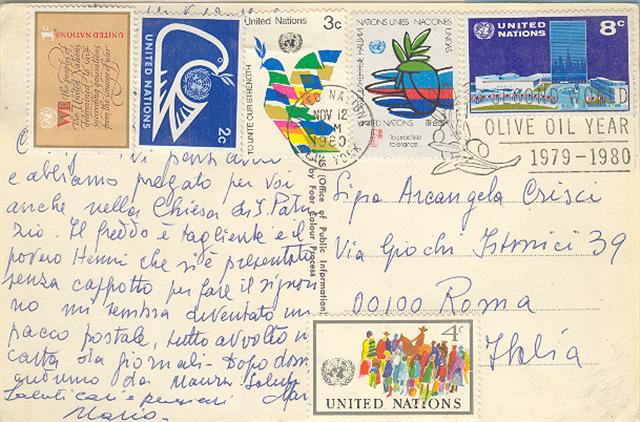 1c
UNITED NATIONS
WE the peoples of
the United Nations
determined to save
succeeding generations
from the scourge of war
UNITED NATIONS
2c
United Nations
3c
TO UNITE OUR STRENGTH
NATIONS UNIES NACIONES
UNIDAS
UNITED NATIONS
To practice
tolerance...
UNITED NATIONS
8c
NOV 12
1980
OLIVE OIL YEAR
1979-1980
Vi pensiamo
e abbiamo pregato per voi
anche nella Chiesa di S. Patri
zio. Il freddo è tagliente e il
povero Henni che si è presentato
senza cappotto per fare il signori
no mi sembra diventato un
pacco postale, tutto avvolto in
carta da giornali. Dopo dom
da Maura
Saluti cari e pensieri
Mario
NS (Office of Public Information)
by Four Colour Process
Sig.a Arcangela Crisci
Via Giochi Istmici 39
00100 Roma
Italia
4c
UNITED NATIONS